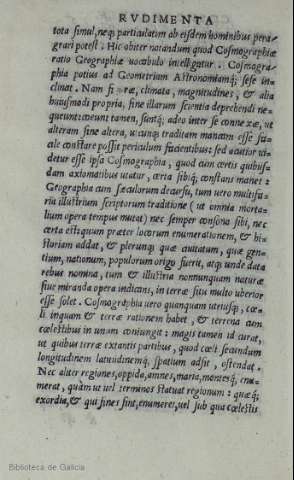 RVDIMENTA
tota simul, neq; particulatim ab eisdem hominibus pera-
grari potest. Hic obiter notandum quod Cosmographiæ
ratio Geographiæ uocabulo intelligitur. Cosmogra-
phia potius ad Geometriam Astronomianq; sese in-
clinat. Nam figuræ, climata, magnitudines, & alia
huiusmodi propria, sine illarum scientia deprehendi ne-
queunt: uerum tamen, suntq; adeo inter se connexæ, ut
alteram sine altera, utcunq; traditam mancam esse fa-
cile constare possit periculum facientibus: sed acutior ui-
detur esse ipsa Cosmographia, quod cum certis quibus-
dam axiomatibus utatur, certa sibiq; constans manet:
Geographia cum sæculorum decursu, tum uero multifa-
ria illustrium scriptorum traditione (ut omnia morta-
lium opera tempus mutat) nec semper consona sibi, nec
certa estquum præter locorum enumerationem, & hi-
storiam addat, & plerunq; quæ ciuitatum, quæ gen-
tium, nationum, populorum origo fuerit, atq; unde data
rebus nomina, tum & illustria nonnunquam naturæ
siue miranda opera indicans, in terræ situ multo uberior
esse solet. Cosmographia uero quanquam utriusq;, cœ-
li inquam & terræ rationem habet, & terrena cum
cœlestibus in unum coniungit: magis tamen id curat,
ut quibus terræ extantis partibus, quod cœli secundum
longitudinem latitudinemq; spatium adsit, ostendat.
Nec aliter regiones, oppida, amnes, maria, montesq; enu-
merat, quàm ut uel terminos statuat regionum: quæq;
exordia, & qui fines sint, enumeret, uel sub qua cœlestis
Biblioteca de Galicia